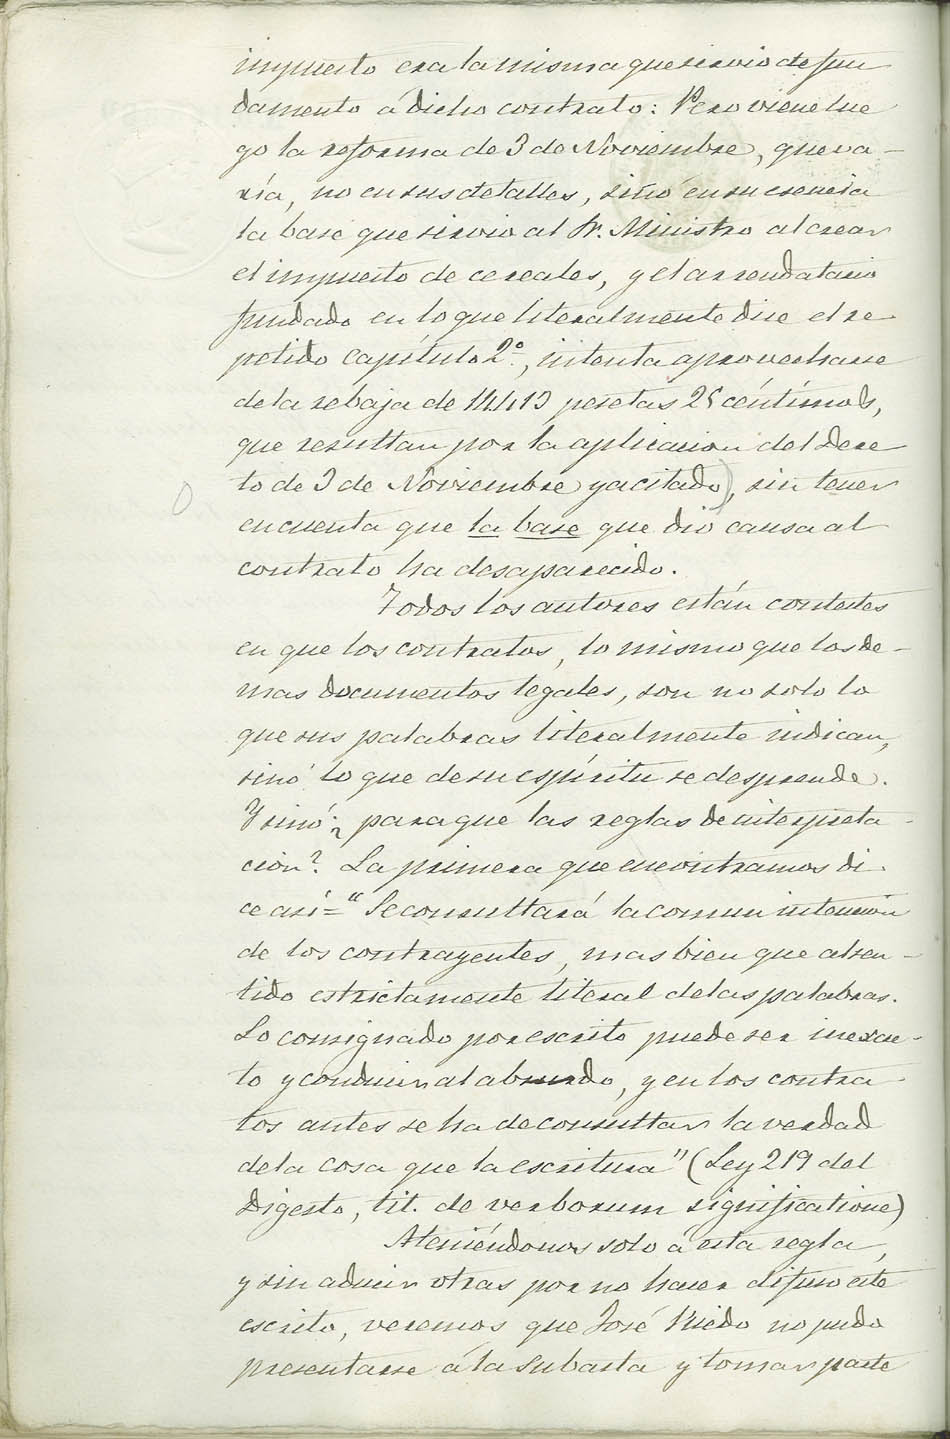 impuesto era la misma que sirvio de fun
damento á dicho contrato: Pero viene lue
go la reforma de 3 de Noviembre, que va-
ría, no en sus detalles, sinó en su esencia
la base que sirvio al Sr. Ministro al crear
el impuesto de cereales, y el arrendatario
fundado en lo que literalmente dice el re
petido capítulo 2º, intenta aprovecharse
de la rebaja de 14.413 pesetas 25 céntimos,
que resultan por la aplicacion del Decre
to de 3 de Noviembre ya citado), sin tener
en cuenta que la base que dio causa al
contrato ha desaparecido.
Todos los autores están contestes
en que los contratos, lo mismo que los de-
mas documentos legales, son no solo lo
que sus palabras literalmente indican,
sinó lo que de su espíritu se desprende.
Y sinó ¿ para que las reglas de interpreta-
cion? La primera que encontramos di-
ce así= "Se consultará la comun intencion
de los contrayentes, mas bien que al sen-
tido estrictamente literal de las palabras.
Lo consignado por escrito puede ser inexac-
to y conducir al absurdo, y en los contra-
tos antes se ha de consultar la verdad
de la cosa que la escritura" (Ley 219 del
Digesto, tit. de verborum significatione)
Ateniéndonos solo á esta regla,
y sin aducir otras por no hacer difuso este
escrito, veremos que José Riedo no pudo
presentarse á la subasta y tomar parte